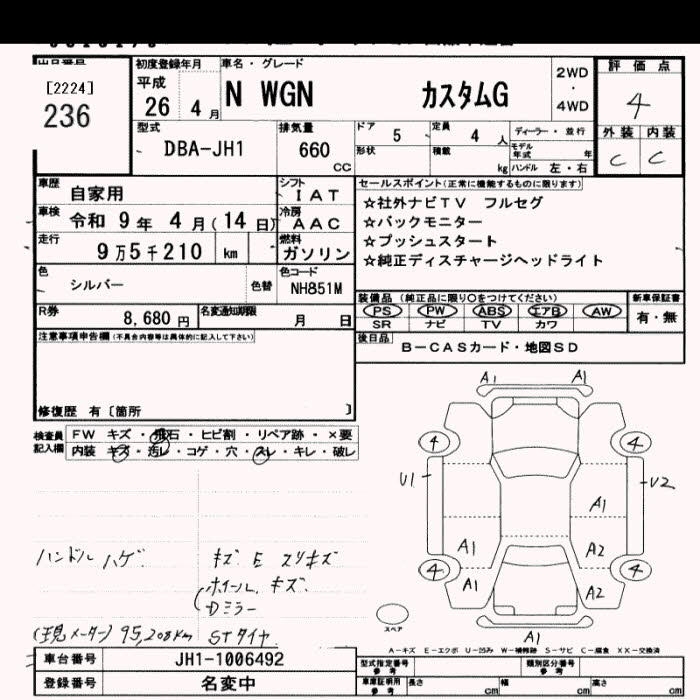 出品番号
[2224]
236
初度登録年月
平成
26 4 月
車名・グレード
N WGN カスタムG
2WD
・
4WD
評価点
4
外装 内装
C C
型式
DBA-JH1
排気量
660 CC
ドア 5
定員 4 人
ディーラー・並行
形状
積載 kg
モデル年式 年
ハンドル 左・右
車歴 自家用
シフト IAT
車検 令和 9年 4月(14日)
冷房 AAC
走行 9万5千210 km
燃料 ガソリン
色 シルバー 色替
色コード NH851M
R券 8,680 円
名変通知期限 月 日
セールスポイント(正常に機能するものに限ります)
☆社外ナビTV フルセグ
☆バックモニター
☆プッシュスタート
☆純正ディスチャージヘッドライト
装備品(純正品に限り○をつけてください)
PS PW ABS エアB AW
SR ナビ TV カワ
新車保証書
有・無
後日品
B-CASカード・地図SD
注意事項申告欄(不具合内容等は具体的に記入して下さい)
修復歴 有〔箇所 〕
検査員記入欄
FW キズ・飛石・ヒビ割・リペア跡・×要
内装 キズ・汚レ・コゲ・穴・スレ・キレ・破レ
ハンドルハゲ
キズ E スリキズ
ホイール キズ
Dミラー
(現メーター) 95,208km STタイヤ
A1 A1
4 4
U1 U2
A1
A1 A2
4 4
A1 A2
A1
スペア
A-キズ E-エクボ U-凹み W-補修跡 S-サビ C-腐食 XX-交換済
車台番号 JH1-1006492
登録番号 名変中
型式指定番号 参考
類別区分番号 参考
車庫証明用 参考
長さ cm 幅 cm 高さ cm